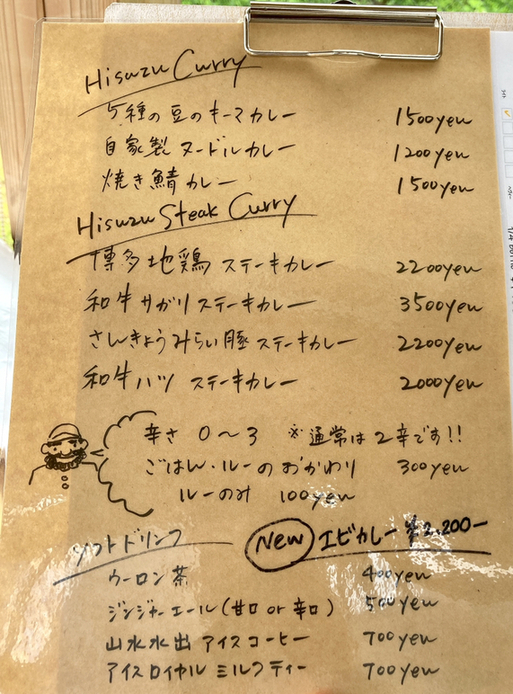 Hisuzu Curry
5種の豆のキーマカレー 1500yen
自家製 ヌードルカレー 1200yen
焼き鯖カレー 1500yen
Hisuzu Steak Curry
博多地鶏 ステーキカレー 2200yen
和牛サガリ ステーキカレー 3500yen
さんきょうみらい豚 ステーキカレー 2200yen
和牛ハツ ステーキカレー 2000yen
辛さ 0〜3 ※通常は2辛です!!
ごはん・ルーのおかわり 300yen
ルーのみ 100yen
ソフトドリンク
New エビカレー ¥2,200-
ウーロン茶 400yen
ジンジャーエール(甘口 or 辛口) 500yen
山水水出アイスコーヒー 700yen
アイスロイヤルミルクティー 700yen